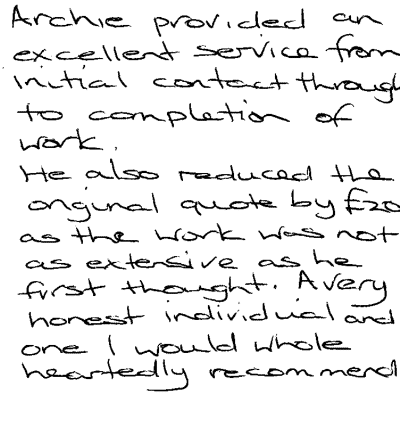 Archie provided an
excellent service from
initial contact through
to completion of
work.
He also reduced the
original quote by £20
as the work was not
as extensive as he
first thought. A very
honest individual and
one I would whole
heartedly recommend